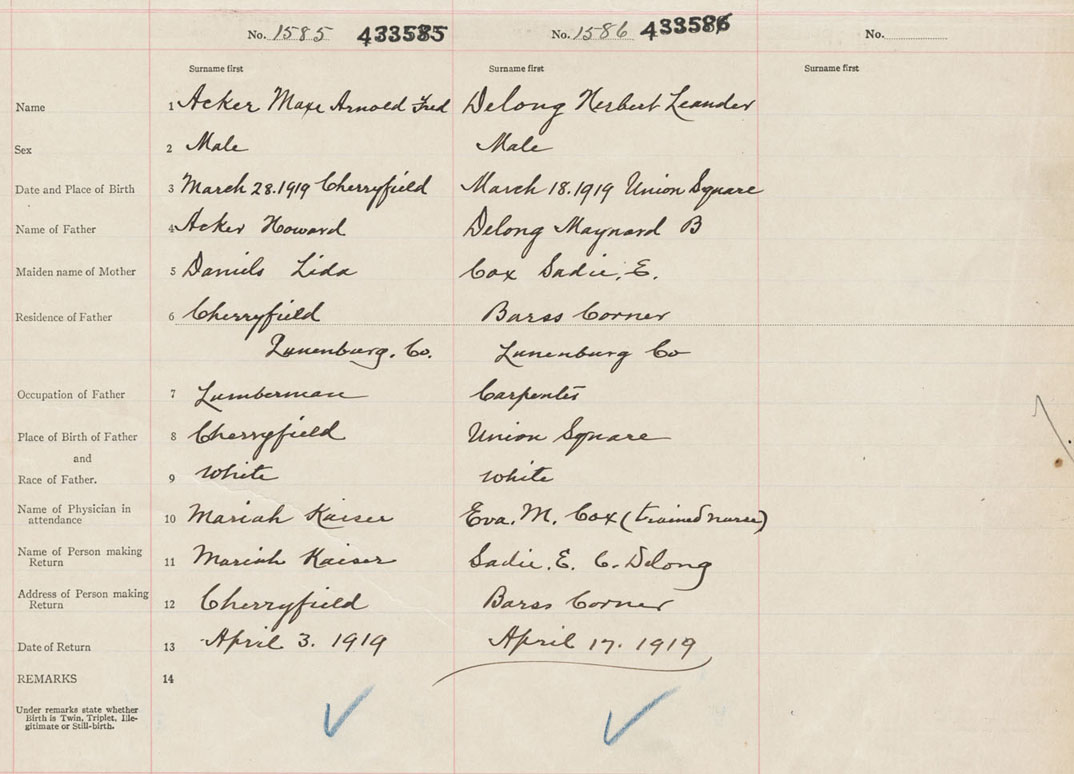 No. 1585 433585 No. 1586 433586 No.
Surname first Surname first Surname first
Name 1 Acker Maxe Arnold Fred Delong Herbert Leander
Sex 2 Male Male
Date and Place of Birth 3 March 28.1919 Cherryfield March 18.1919 Union Square
Name of Father 4 Acker Howard Delong Maynard B
Maiden name of Mother 5 Daniels Lida Cox Sadie. E.
Residence of Father 6 Cherryfield Barss Corner
Lunenburg. Co. Lunenburg Co
Occupation of Father 7 Lumberman Carpenter
Place of Birth of Father 8 Cherryfield Union Square
and
Race of Father. 9 White White
Name of Physician in
attendance 10 Mariah Kaiser Eva. M. Cox (trained nurse)
Name of Person making
Return 11 Mariah Kaiser Sadie. E. C. Delong
Address of Person making
Return 12 Cherryfield Barss Corner
Date of Return 13 April 3. 1919 April 17. 1919
REMARKS 14
Under remarks state whether
Birth is Twin, Triplet, Ille-
gitimate or Still-birth.